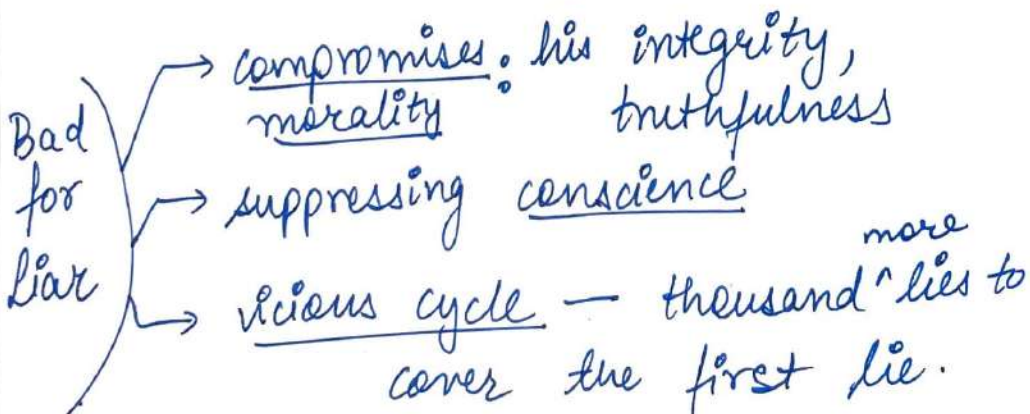 Bad for Liar
→ compromises : his integrity,
morality truthfulness
→ suppressing conscience
→ vicious cycle — thousand ^more lies to
cover the first lie.